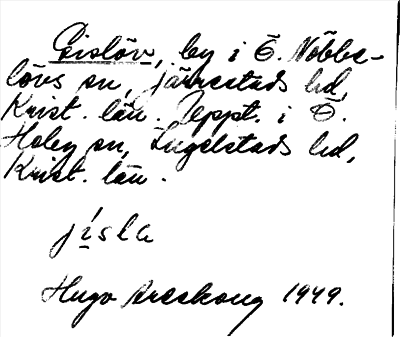 Gislöv, by i Ö. Nöbbe-
lövs sn, Järrestads hd,
Krist. län. Uppt. i Ö.
Hoby sn, Ingelstads hd,
Krist. län.
jísla
Hugo Areskoug 1949.